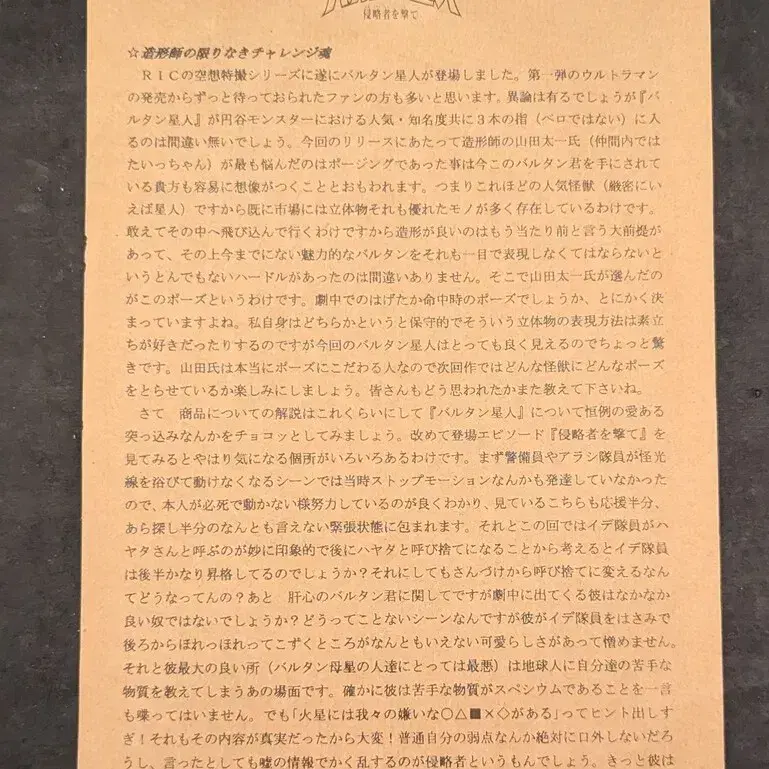 侵略者を撃て
☆造形師の限りなきチャレンジ魂
RICの空想特撮シリーズに遂にバルタン星人が登場しました。第一弾のウルトラマン
の発売からずっと待っておられたファンの方も多いと思います。異論は有るでしょうが『バ
ルタン星人』が円谷モンスターにおける人気・知名度共に3本の指(ベロではない)に入
るのは間違い無いでしょう。今回のリリースにあたって造形師の山田太一氏(仲間内では
たいっちゃん)が最も悩んだのはポージングであった事は今このバルタン君を手にされて
いる貴方も容易に想像がつくこととおもわれます。つまりこれほどの人気怪獣(厳密にい
えば星人)ですから既に市場には立体物それも優れたモノが多く存在しているわけです。
敢えてその中へ飛び込んで行くわけですから造形が良いのはもう当たり前と言う大前提が
あって、その上今までにない魅力的なバルタンをそれも一目で表現しなくてはならないと
いうとんでもないハードルがあったのは間違いありません。そこで山田太一氏が選んだの
がこのポーズというわけです。劇中でのはげたか命中時のポーズでしょうか、とにかく決
まっていますよね。私自身はどちらかというと保守的でそういう立体物の表現方法は素立
ちが好きだったりするのですが今回のバルタン星人はとっても良く見えるのでちょっと驚
きです。山田氏は本当にポーズにこだわる人なので次回作ではどんな怪獣にどんなポーズ
をとらせているか楽しみにしましょう。皆さんもどう思われたかまた教えて下さいね。
さて 商品についての解説はこれくらいにして『バルタン星人』について恒例の愛ある
突っ込みなんかをチョコッとしてみましょう。改めて登場エピソード『侵略者を撃て』を
見てみるとやはり気になる個所がいろいろあるわけです。まず警備員やアラシ隊員が怪光
線を浴びて動けなくなるシーンでは当時ストップモーションなんかも発達していなかった
ので、本人が必死で動かない様努力しているのが良くわかり、見ているこちらも応援半分、
あら探し半分のなんとも言えない緊張状態に包まれます。それとこの回ではイデ隊員がハ
ヤタさんと呼ぶのが妙に印象的で後にハヤタと呼び捨てになることから考えるとイデ隊員
は後半かなり昇格してるのでしょうか?それにしてもさんづけから呼び捨てに変えるなん
てどうなってんの?あと 肝心のバルタン君に関してですが劇中に出てくる彼はなかなか
良い奴ではないでしょうか?どうってことないシーンなんですが彼がイデ隊員をはさみで
後ろからほれっほれってこずくところがなんともいえない可愛らしさがあって憎めません。
それと彼最大の良い所(バルタン母星の人達にとっては最悪)は地球人に自分達の苦手な
物質を教えてしまうあの場面です。確かに彼は苦手な物質がスペシウムであることを一言
も喋ってはいません。でも「火星には我々の嫌いな○△■×◇がある」ってヒント出しす
ぎ!それもその内容が真実だったから大変!普通自分の弱点なんか絶対に口外しないだろ
うし、言ったとしても嘘の情報でかく乱するのが侵略者というもんでしょう。きっと彼は